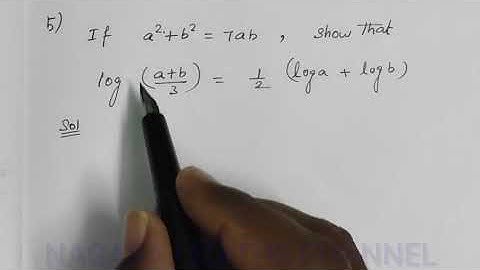 5) If a² + b² = 7ab , show that
log (a+b/3) = 1/2 (log a + log b)
Sol
CHANNEL